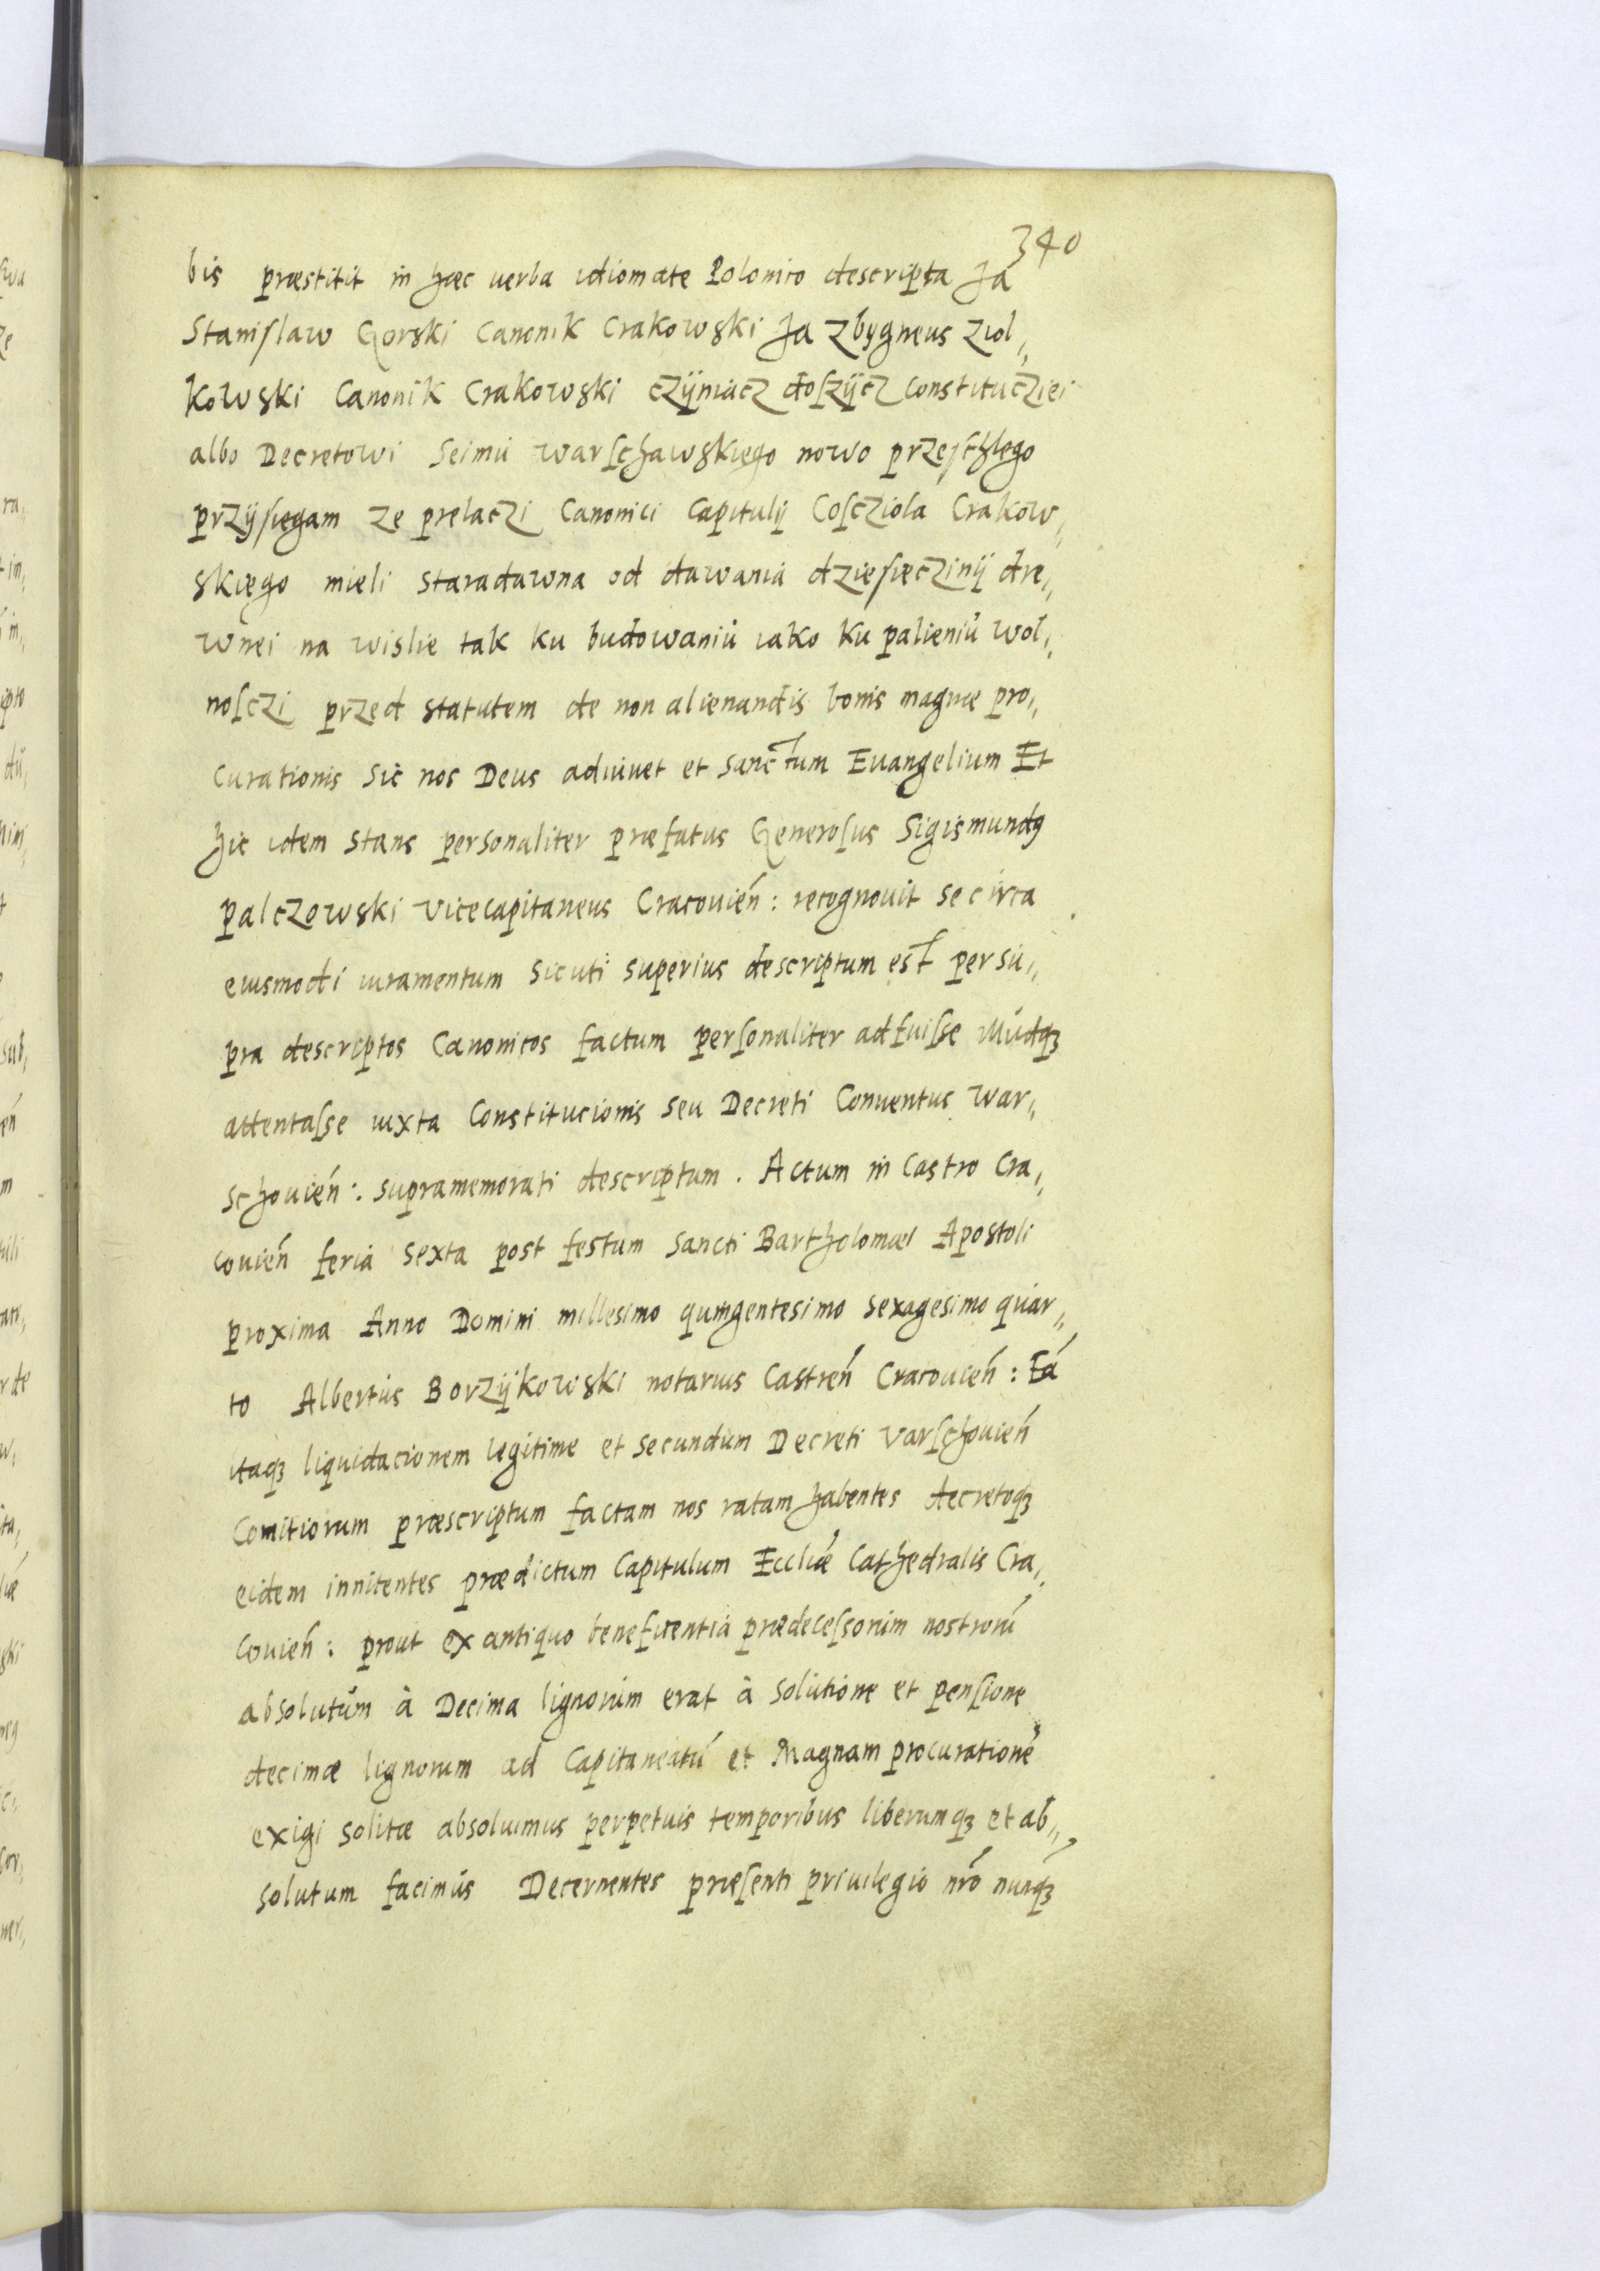 340
bis præstitit in hæc uerba idiomate Polonico descripta Ja
Stanislaw Gorski Canonik Crakowski Ja Zbygneus Ziol„
kowski Canonik Crakowski czÿniacz doſzÿcz Constitucziei
albo Decretowi Seimu warſchawskiego nowo przeſchlego
przÿſiegam ze prelaczi Canonici Capitulÿ Coſcziola Crakow„
skiego mieli staradawna od dawania dzieſieczinÿ dre„
wnei na wislie tak ku budowaniu iako ku palieniu wol„
noſczi przed statutem de non alienandis bonis magnæ pro„
curationis Sic nos Deus adiuuet et sanctum Euangelium Et
hic idem stans personaliter præfatus Generoſus Sigismundꝯ
Palczowski Vicecapitaneus Cracouień: recognouit se circa
eiusmodi iuramentum Sicuti superius descriptum est per su„
pra descriptos Canonicos factum perſonaliter adfuiſse illudqꝫ
attentaſse iuxta Constitucionis seu Decreti Conuentus War„
schouień: supramemorati descriptum. Actum in Castro Cra„
couień feria sexta post festum Sancti Bartholomæi Apostoli
proxima Anno Domini millesimo quingentesimo sexagesimo quar„
to Albertus Borzÿkowski notarius Castreń Cracouień: Eá
itaqꝫ liquidacionem legitime et secundum Decreti Varſchouień
Comitiorum præscriptum factam nos ratam habentes decretoqꝫ
eidem innitentes prædictum Capitulum Eccliæ Cathedralis Cra„
couień: prout ex antiquo beneficentia prædeceſsorum nostroru
absolutum à Decima lignorum erat à solutione et penſione
decimæ lignorum ad Capitaneatu et Magnam procuratione
exigi solitæ absoluimus perpetuis temporibus liberumqꝫ et ab„
solutum facimus Decernentes præſenti priuilegio nro nunqꝫ